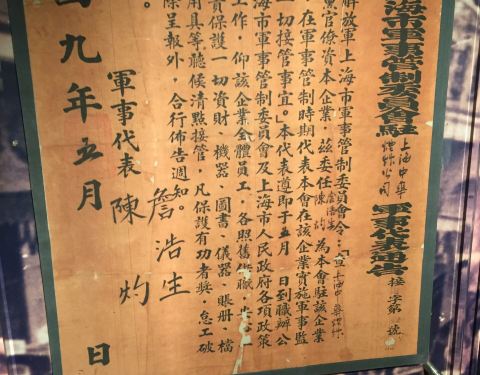 海市軍事管制委員會駐
上海中華
公司
軍事代表通告
接字第 號
解放軍上海市軍事管制委員會令:「
官僚資本企業,茲委任
陳灼
為本會駐該企業
在軍事管制時期代表本會在該企業實施軍事監
一切接管事宜。」本代表遵即于五月 日到職辦公
海市軍事管制委員會及上海市人民政府各項政策
工作,仰該企業全體員工,各照舊供職,
責保護一切資財、機器、圖書、儀器、賬册、檔
用具等聽候清點接管,凡保護有功者獎,怠工破
除呈報外,合行佈告週知。
軍事代表 陳灼
詹浩生
九年五月
日